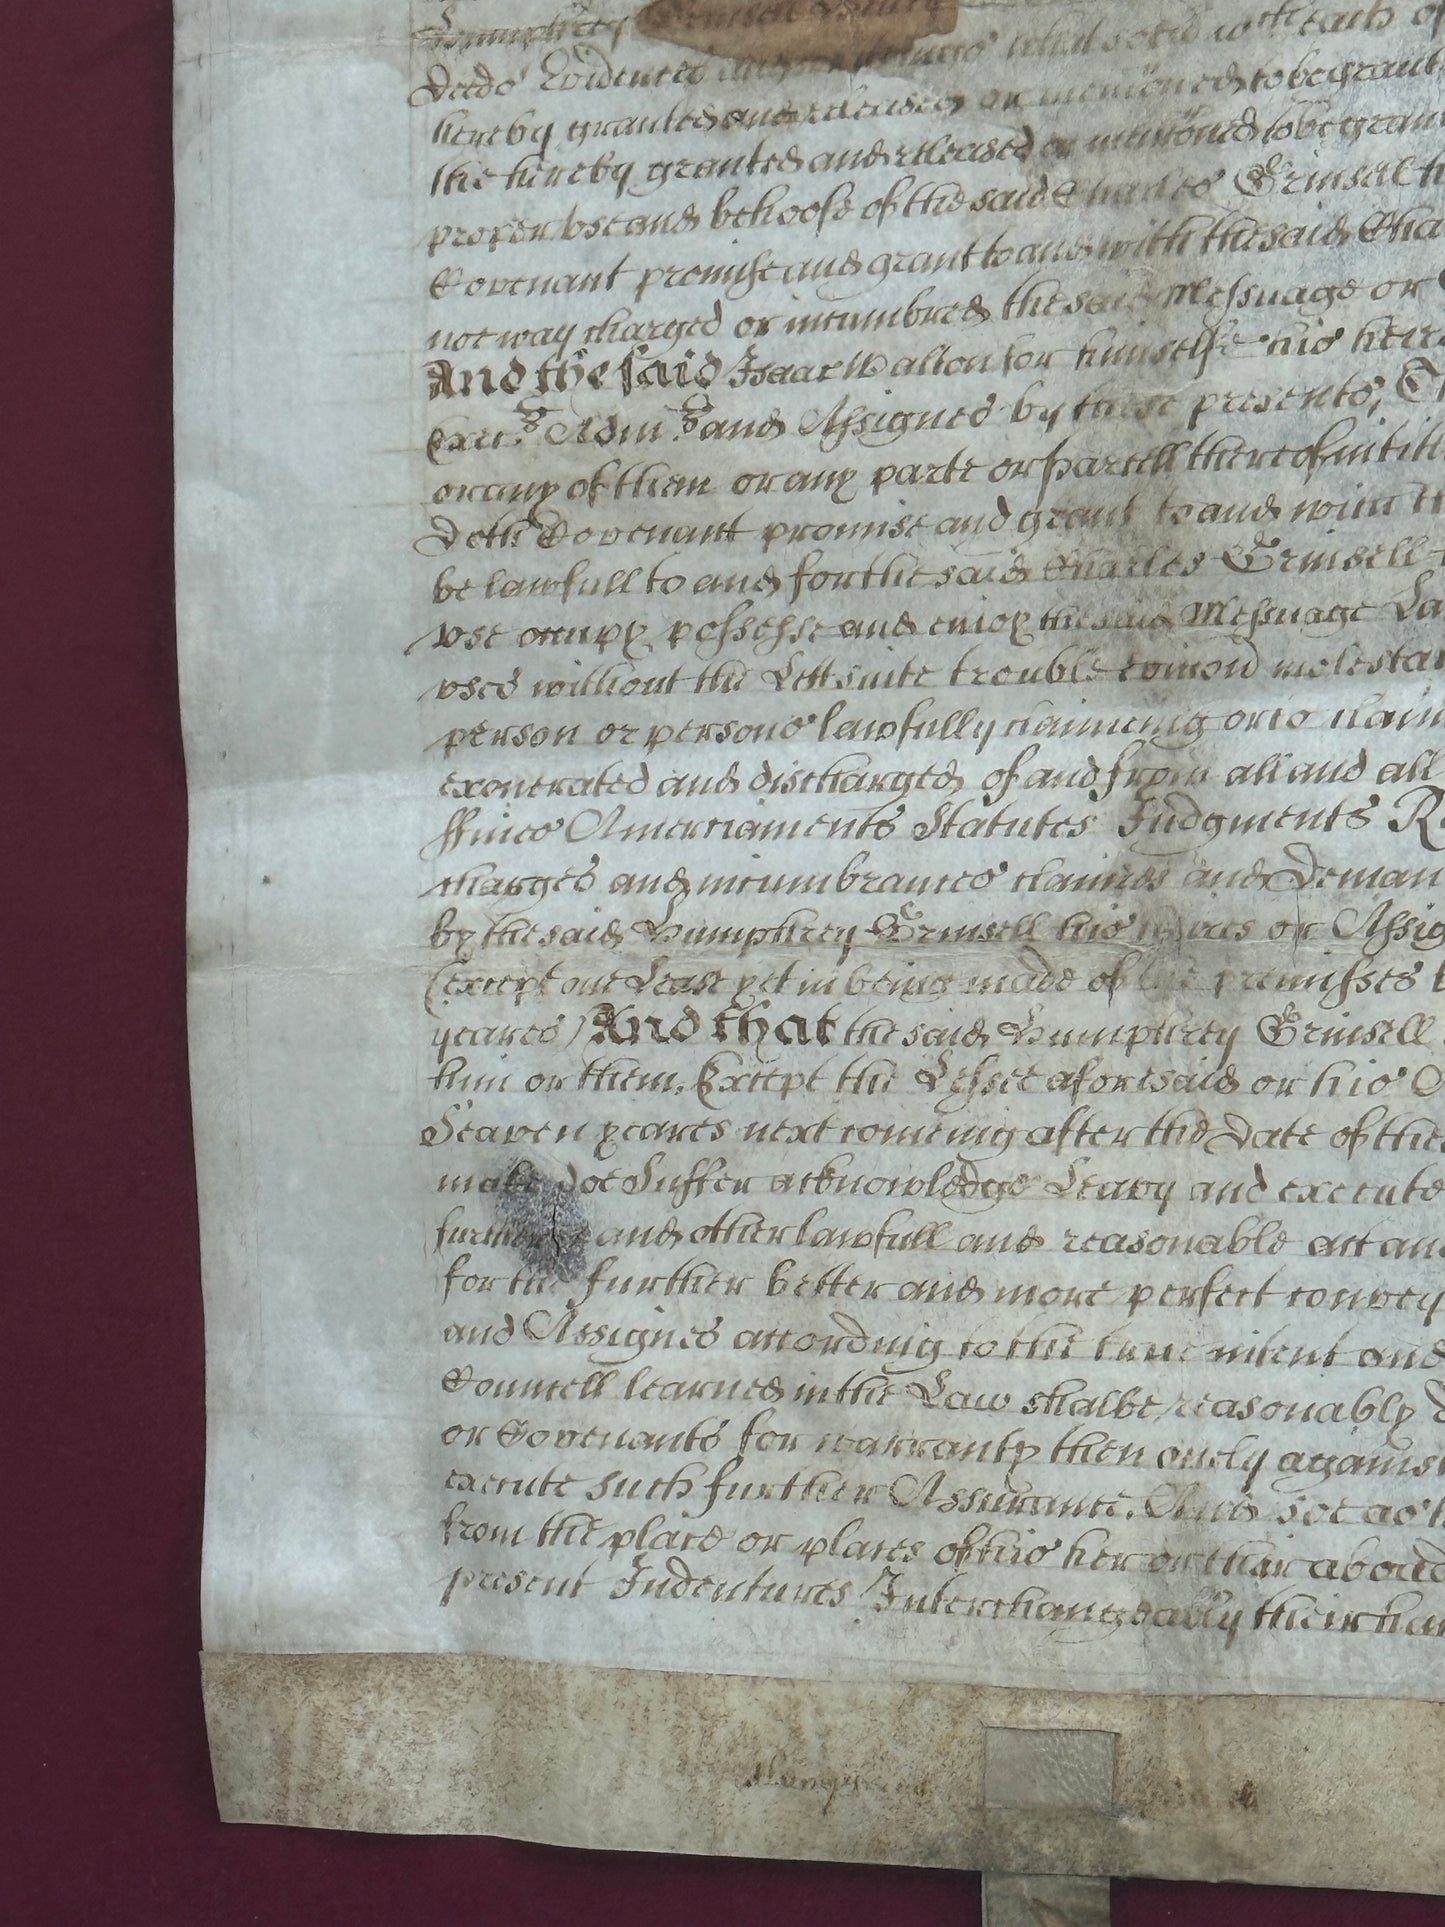 Humphrey Grinsell
Deeds Evidences whatsoever wch
hereby granted and released or mencioned to be grant
the hereby granted and released or mencioned to be gran
proper use and behoofe of the said Charles Grinsell h
Covenant promise and grant to and with the said Cha
noe way charged or incumbred the said Messuage or
And the said Isaac Walton for himselfe his heir
Execrs Admrs and Assignes by these presents, Th
or any of them or any parte or parcell thereof intitl
Doth Covenant promise and grant to and with th
be lawfull to and for the said Charles Grinsell
use occupy possesse and enioy the said Messuage La
uses without the Lett suite trouble eviccon molestac
person or persons lawfully claimeing or to claim
exonerated and discharged of and from all and all
ffines Amerciaments Statutes Judgments Re
charges and incumbrances claimes and Deman
by the said Humphrey Grinsell his heires or Assig
(except one Lease yet in being made of the premisses
yeares) And that the said Humphrey Grinsell
him or them, Except the Lessee aforesaid or his
Seaven yeares next comeing after the Date of thes
make doe Suffer acknowledge Leavy and execute
further and other lawfull and reasonable act and
for the further better and more perfect convey
and Assignes according to the true intent and
Councell learned in the Law shalbe reasonably
or Covenants for warranty then onely against
execute such further Assurance. And soe as
from the place or places of his her or their aboad
present Indentures Interchangeably their han